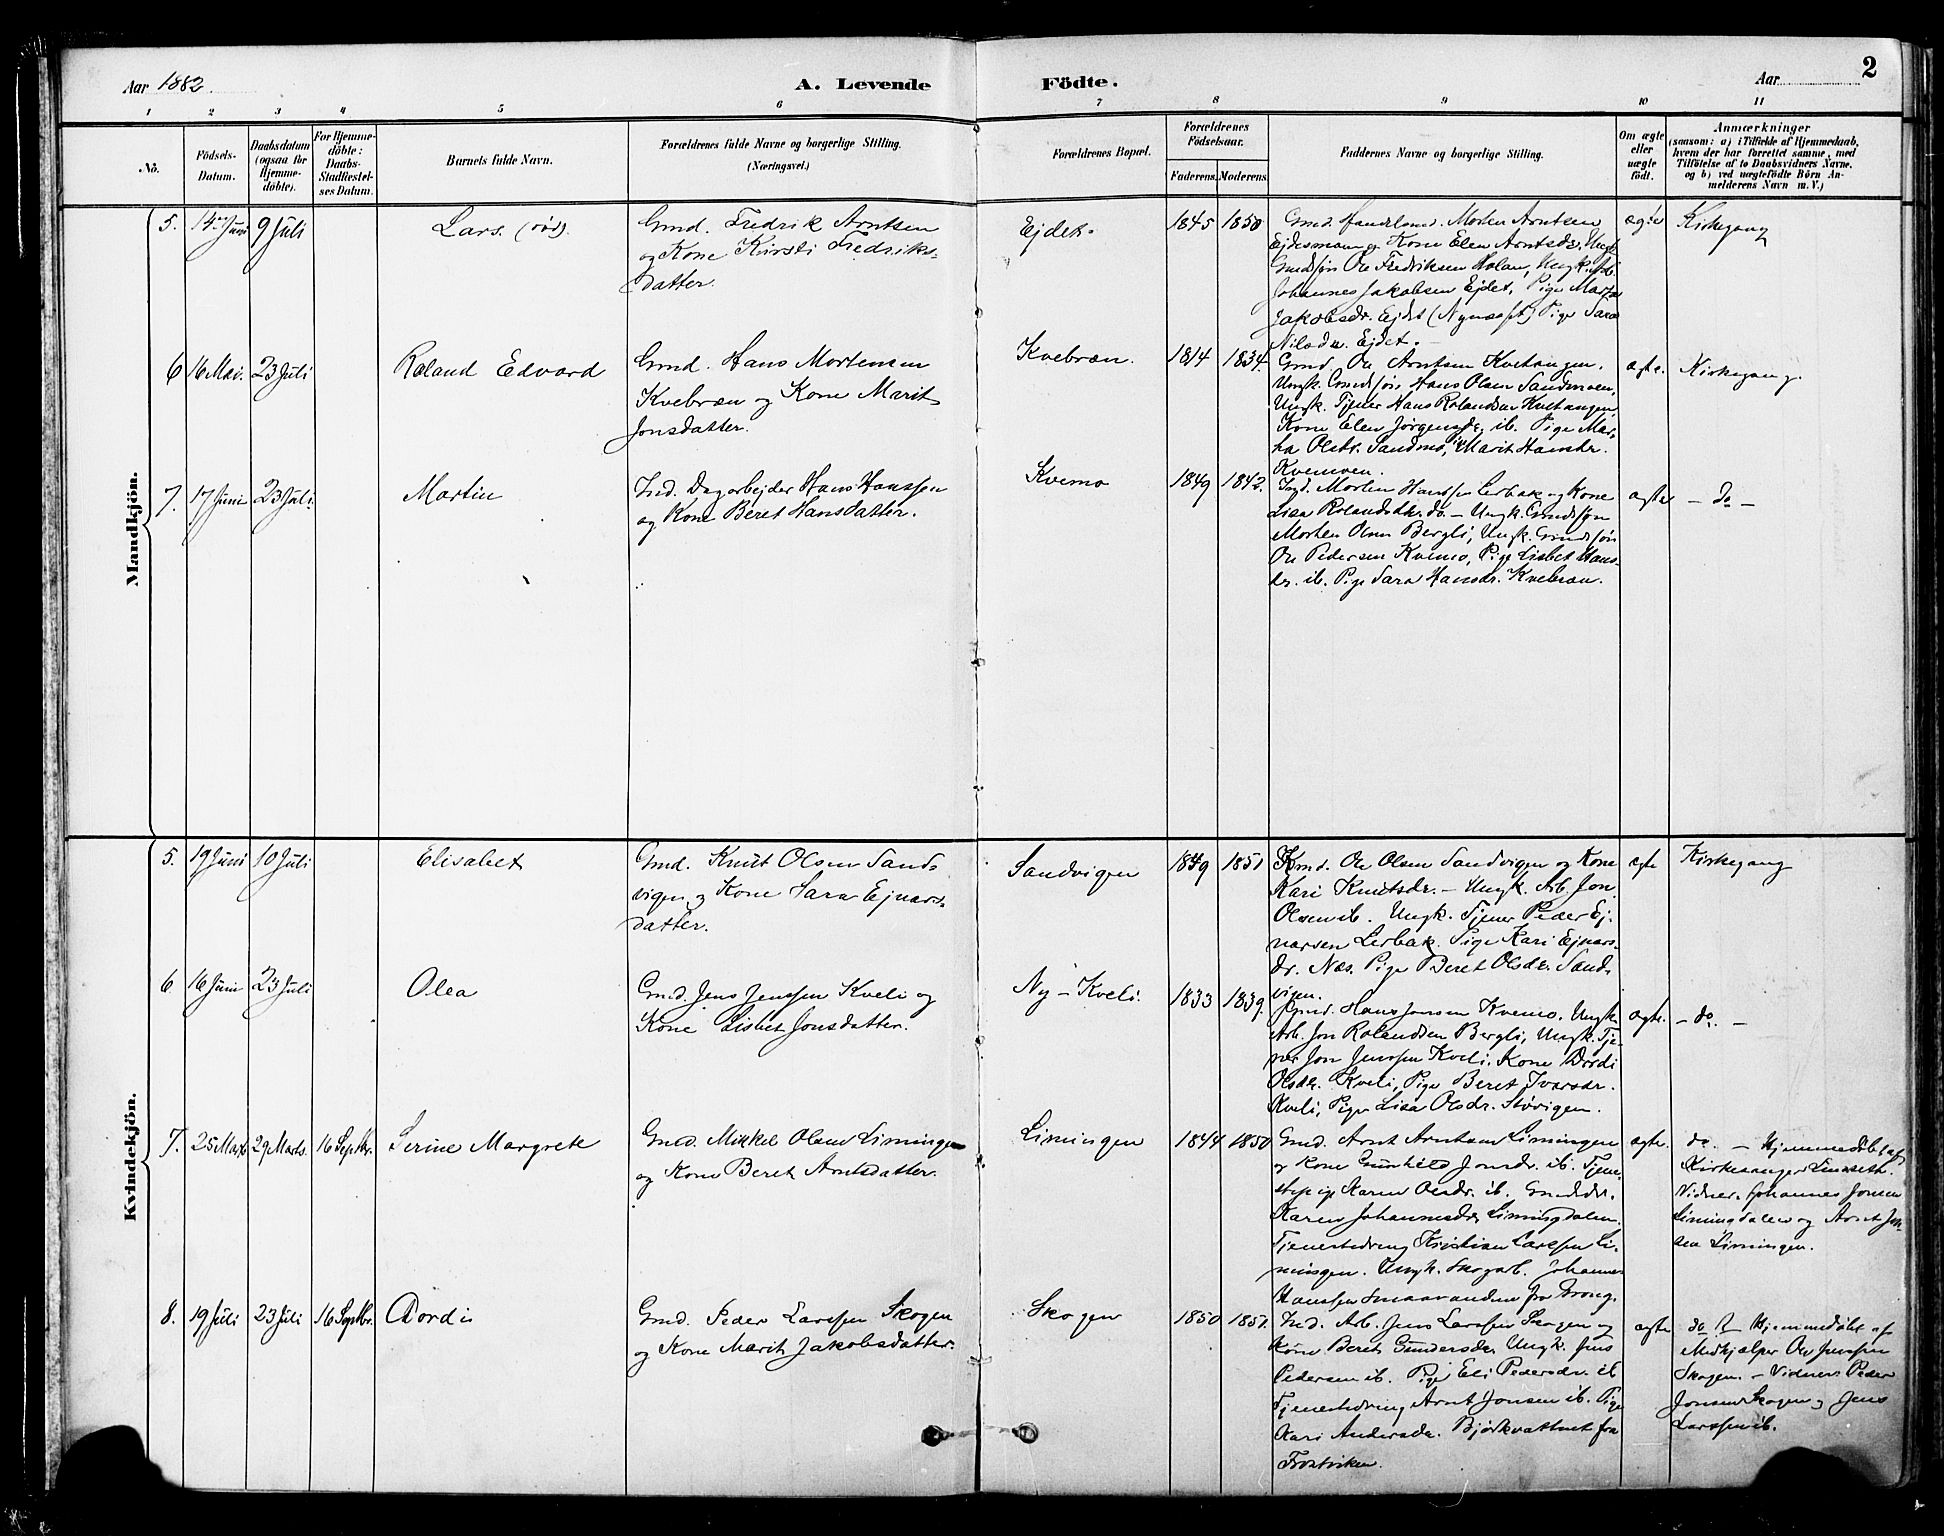 Aar 1882.
A. Levende Födte.
Aar
2
1 2 3 4 5 6 7 8 9 10 11
No.
Födsels-Datum.
Daabsdatum (ogsaa for Hjemme-döbte).
For Hjemme-döbte: Daabs-Stadfæstel-ses Datum.
Barnets fulde Navn.
Forældrenes fulde Navne og borgerlige Stilling. (Næringsvei.)
Forældrenes Bopæl.
Forældrenes Födselsaar.
Faderens. Moderens.
Faddernes Navne og borgerlige Stilling.
Om ægte eller uægte födt.
Anmærkninger
(saasom: a) i Tilfælde af Hjemmedaab,
hvem der har forrettet samme, med
Tilföielse af to Daabsvidners Navne,
og b) ved uægtefödte Börn An-
melderens Navn m. V.)
Mandkjön.
5. 14de Juni 9 Juli
Lars. (död).
Gmd. Fredrik Arntsen
og Kone Kirsti Fredriks-
datter.
Ejdet.
1845 1850
Gmd. Handelsmd. Morten Arntsen
Ejdesmann og Kone Elen Arntsdr. Ungk.
Gmdsøn Ole Fredriksen Holan, Ungk. Arb.
Johannes Jakobsen Ejdet, Pige Marta
Jakobsdr. Ejdet (Nynæset) Pige Sara
Nilsdr. Ejdet.
ægte
Kirkegang
6 16 Mai. 23 Juli
Roland Edvard
Gmd. Hans Mortensen
Kvebræn og Kone Marit
Jonsdatter.
Kvebræn.
1814 1834.
Gmd. Ole Arntsen Kvetangen.
Ungk. Gmdsøn Hans Olsen Sandmoen,
Ungk. Tjener Hans Rolandsen Kvetangen,
Kone Elen Jørgensdr. ib. Pige Mar-
tha Olsdr. Sandmo, Marit Hansdr.
Kvemoen.
ægte.
Kirkegang.
7. 17 Juni 23 Juli.
Martin
Ind. Dagarbejder Hans Hanssen
og Kone Beret Hansdatter.
Kvemo
1849 1842.
Ind. Morten Hanssen Lerbak og Kone
Lisa Rolandsdtr. do. – Ungk. Gmdsøn
Morten Olsen Bergli, Ungk. Gmdsøn
Ole Pedersen Kvemo, Pige Lisbet Hans-
dr. ib. Pige Sara Hansdr. Kvebræn.
ægte
– do –
Kvindekjön.
5. 19 Juni 10 Juli
Elisabet
Gmd. Knut Olsen Sand-
vigen og Kone Sara Ejnars-
datter.
Sandvigen
1849 1851
Kmd. Ole Olsen Sandvigen og Kone
Kari Knutsdr. – Ungk. Arb. Jon
Olsen ib. Ungk. Tjener Peder Ej-
narsen Lerbak. Pige Kari Ejnars-
dr. Næs. Pige Beret Olsdr. Sand-
vigen.
ægte
Kirkegang
6 16 Juni 23 Juli
Olea
Gmd. Jens Jenssen Kveli og
Kone Lisbet Jonsdatter.
Ny – Kveli.
1833 1839.
Gmd. Hans Jonsen Kvemo. Ungk.
Arb. Jon Rolandsen Bergli, Ungk. Tje-
ner Jon Jenssen Kveli. Kone Dordi
Olsdr. Kveli, Pige Beret Ivarsdr.
Kveli, Pige Lisa Olsdr. Støvigen.
ægte.
– do. –
7. 25 Marts 29 Marts. 16 Septbr.
Serine Margrete
Gmd. Mikkel Olsen Limingen
og Kone Beret Arntsdatter.
Limingen
1844 1850
Gmd. Arnt Arntsen Limingen
og Kone Gunhild Jonsdr. ib. Tjene-
stepige Karen Olsdr. ib. Gmdsdr.
Karen Johannesdr. Limingdalen.
Tjenestedreng Kristian Larssen Li-
mingen. Ungk. Skogarb. Johannes
Hanssen Smaavanden fra Grong.
ægte.
do. – Hjemmedöbt af
Kirkesanger
Vidner. Johannes Jonsen
Limingdalen og Arnt Jon-
sen Limingen.
8. 19 Juli 23 Juli 16 Septbr.
Dordi
Gmd. Peder Larssen Skogen
og Kone Marit Jakobsdatter.
Skogen
1850 1851.
Ind. Arb. Jens Larssen Skogen og
Kone Beret Gundersdr. Ungk. Jens
Pedersen ib. Pige Eli Pedersdr. ib
Tjenestedreng Arnt Jonsen ib. Pige
Kari Andersdr. Bjørkvattnet fra
Frostviken.
ægte
do – Hjemmedöbt af
Medhjælper Ole Jenssen
Skogen. – Vidner: Peder
Jonsen Skogen og Jens
Larssen ib.